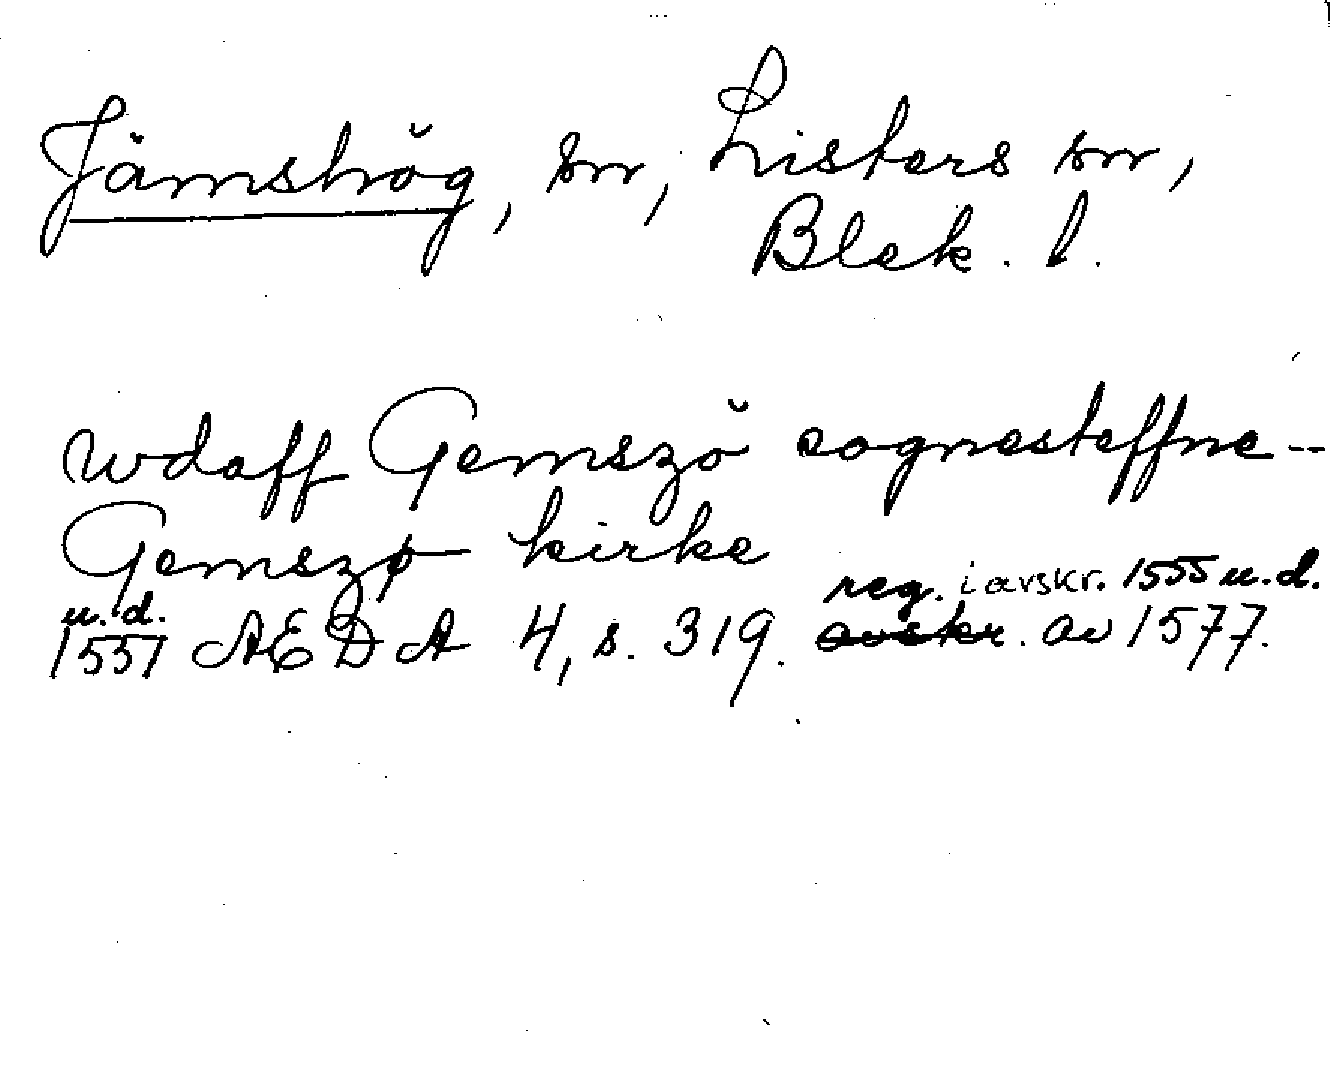 Jämshög, sn, Listers hd,
Blek. l.
wdaff Gemszö sognesteffne--
Gemszø kirke
reg. i avskr. 1555 u.d.
u.d.
1551 AEDA 4, s. 319. avskr. av 1577.